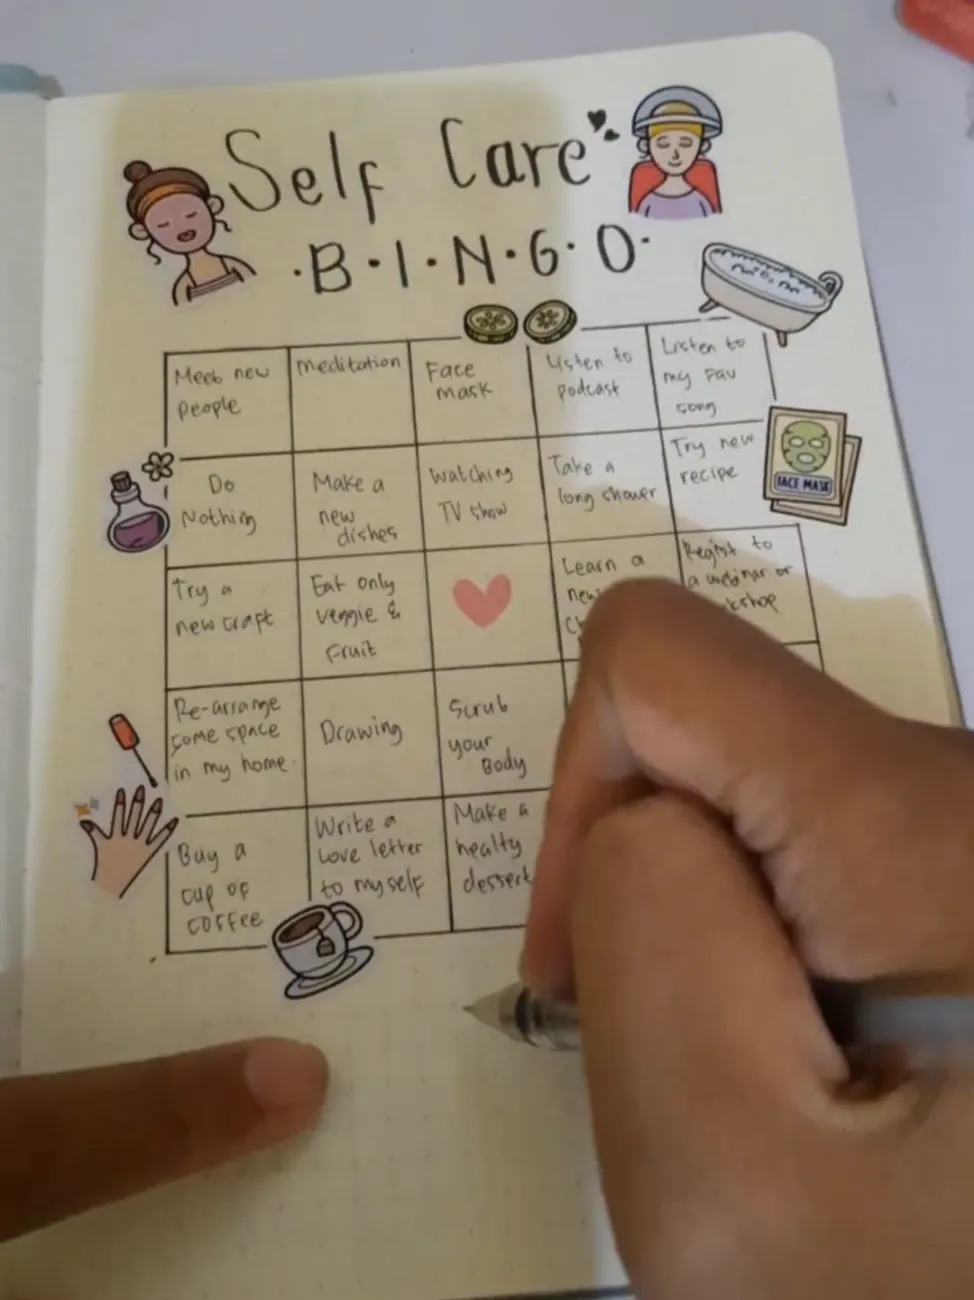 Self Care
·B·I·N·G·O·
Meet new
people
meditation
Face
mask
Listen to
podcast
Listen to
my fav
song
Do
Nothing
Make a
new
dishes
Watching
TV show
Take a
long shower
Try new
recipe
FACE MASK
Try a
new craft
Eat only
veggie &
Fruit
Learn a
new
Regist to
a webinar or
Re-arrange
some space
in my home.
Drawing
Scrub
your
Body
Buy a
cup of
coffee
Write a
Love letter
to myself
Make a
healty
dessert